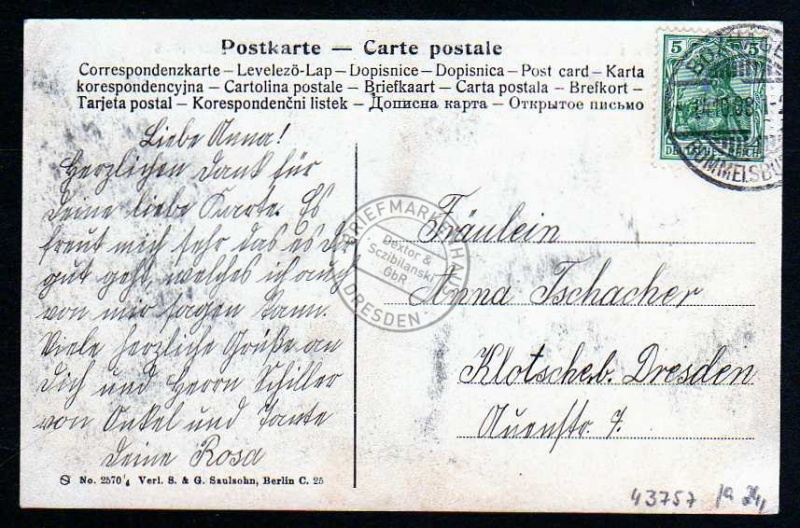 Postkarte — Carte postale
Correspondenzkarte – Levelező-Lap – Dopisnice – Dopisnica – Post card – Karta
korespondencyjna – Cartolina postale – Briefkaart – Carta postala – Brefkort –
Tarjeta postal – Korespondenčni listek – Дописна карта – Открытое письмо
5 5
DEUTSCHES REICH
RUMMELSBURG
Liebe Anna!
Herzlichen Dank für
Deine liebe Karte. Es
freut mich sehr das es dir
gut geht, welches ich auch
von mir sagen kann.
Viele herzliche Grüße an
Dich und Herrn Schiller
von Onkel und Tante
Deine Rosa
Fräulein
Anna Tschacher
Klotscheb. Dresden
Auenstr. 7.
BRIEFMARKENHAUS
Dextor &
Sczibilanski
GbR
DRESDEN
No. 2570 Verl. S. & G. Saulsohn, Berlin C. 25
43757